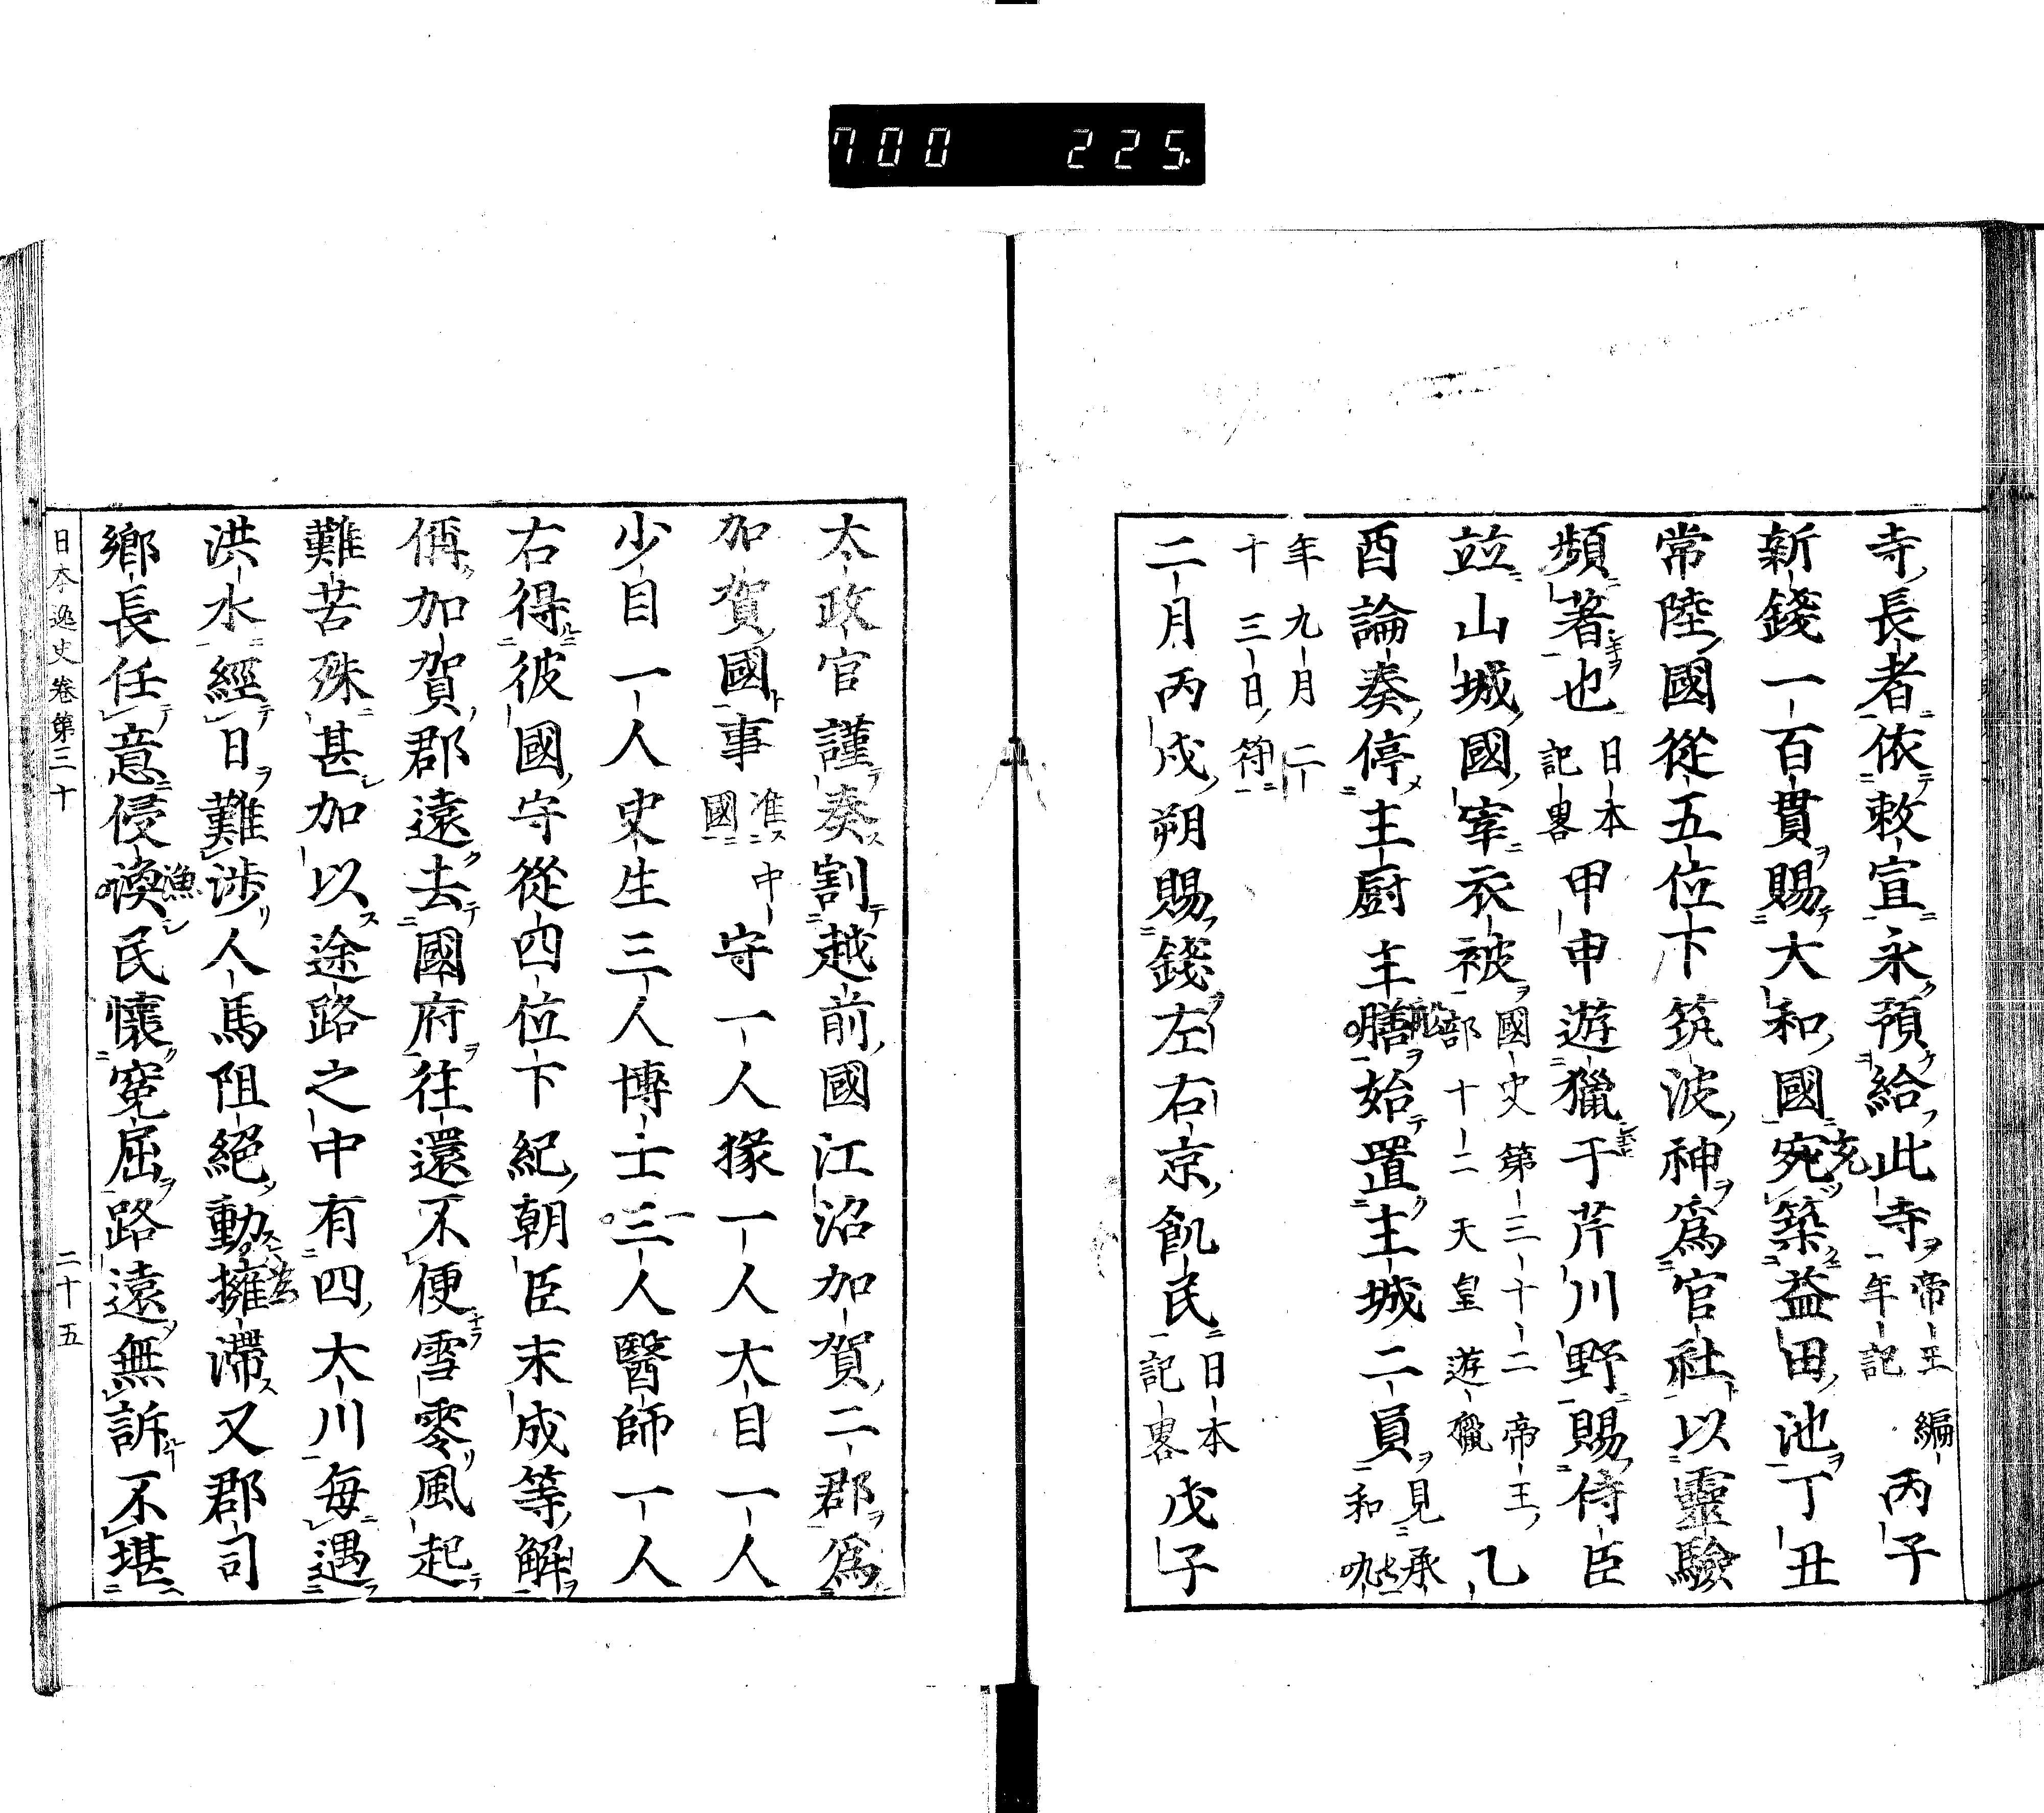 700 225
寺長者依敕宣永預給此寺帝王編年記丙子
新錢一百貫賜大和國宛築益田池丁丑
常陸國從五位下筑波神爲官社以靈驗
頻著也日本記畧甲申遊獵于芹川野賜侍臣
竝山城國宰衣被國史第三十二帝王部十二天皇遊獵乙
酉論奏停主厨主膳始置主城二員見承和九
年九月二十三日符
二月丙戌朔賜錢左右京飢民日本記畧戊子
太政官謹奏割越前國江沼加賀二郡爲
加賀國事准中國守一人掾一人大目一人
少目一人史生三人博士三人醫師一人
右得彼國守從四位下紀朝臣末成等解
偁加賀郡遠去國府往還不便雪零風起
難苦殊甚加以途路之中有四大川每遇
洪水經日難涉人馬阻絕動擁滯又郡司
鄉長任意侵渙民懷冤屈路遠無訴不堪
日本逸史卷第三十 二十五